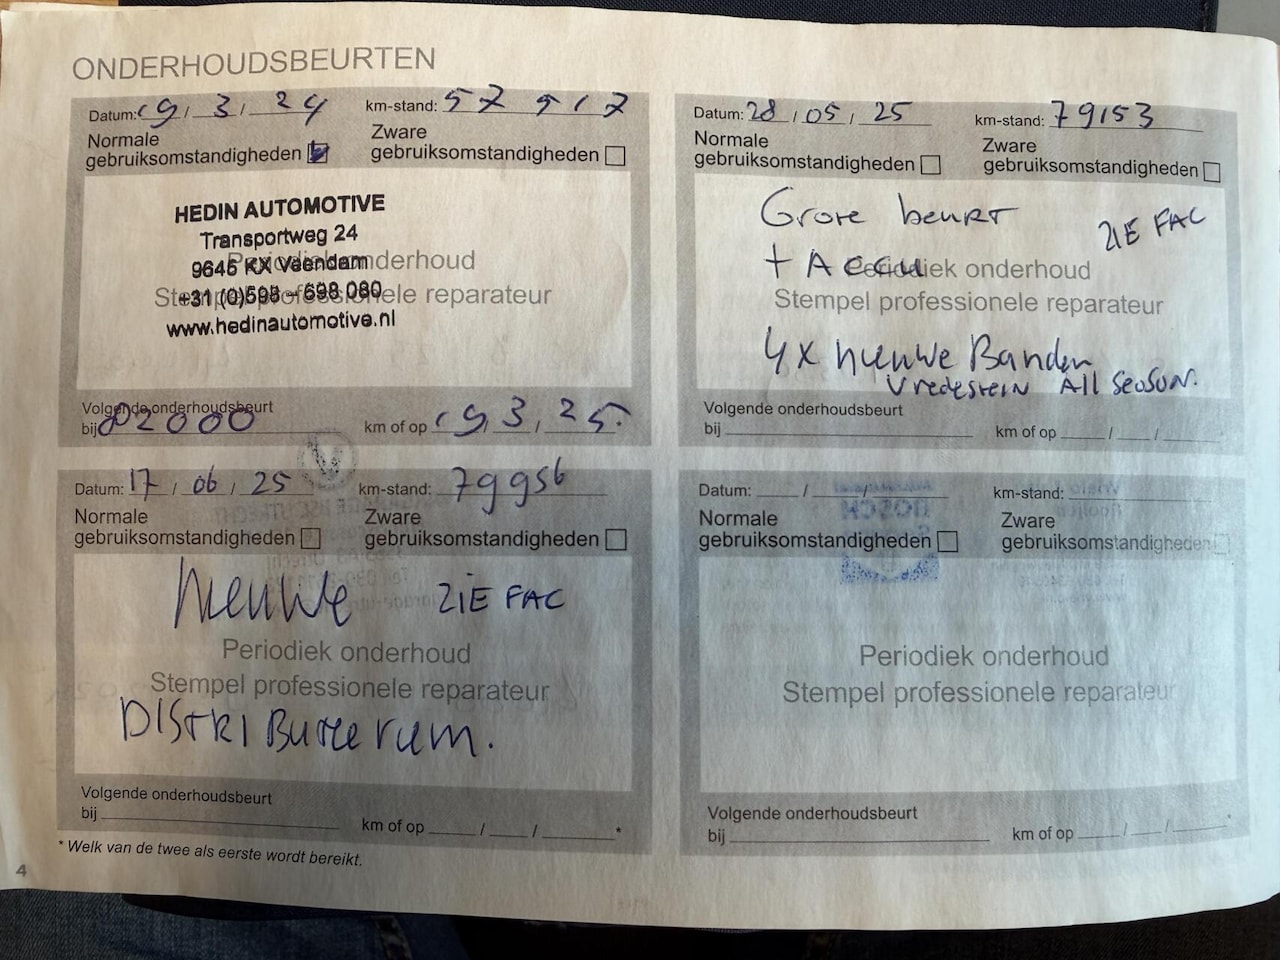 ONDERHOUDSBEURTEN
Datum: 19 / 3 / 24 km-stand: 57 917
Normale gebruiksomstandigheden Zware gebruiksomstandigheden
HEDIN AUTOMOTIVE
Transportweg 24
9645 KX Veendam
Periodiek onderhoud
+31 (0)598 - 698 060
Stempel professionele reparateur
www.hedinautomotive.nl
Volgende onderhoudsbeurt
bij 82000 km of op 19 / 3 / 25.
Datum: 28 / 05 / 25 km-stand: 79153
Normale gebruiksomstandigheden Zware gebruiksomstandigheden
Grote beurt ZIE FAC
+ Accu
Periodiek onderhoud
Stempel professionele reparateur
4x nieuwe Banden
Vredestein All Seoson.
Volgende onderhoudsbeurt
bij km of op / /
Datum: 17 / 06 / 25 km-stand: 79956
Normale gebruiksomstandigheden Zware gebruiksomstandigheden
Nieuwe ZIE FAC
Periodiek onderhoud
Stempel professionele reparateur
DISTRIButieriem.
Volgende onderhoudsbeurt
bij km of op / / *
Datum: / / km-stand:
Normale gebruiksomstandigheden Zware gebruiksomstandigheden
Periodiek onderhoud
Stempel professionele reparateur
Volgende onderhoudsbeurt
bij km of op / / *
* Welk van de twee als eerste wordt bereikt.
4